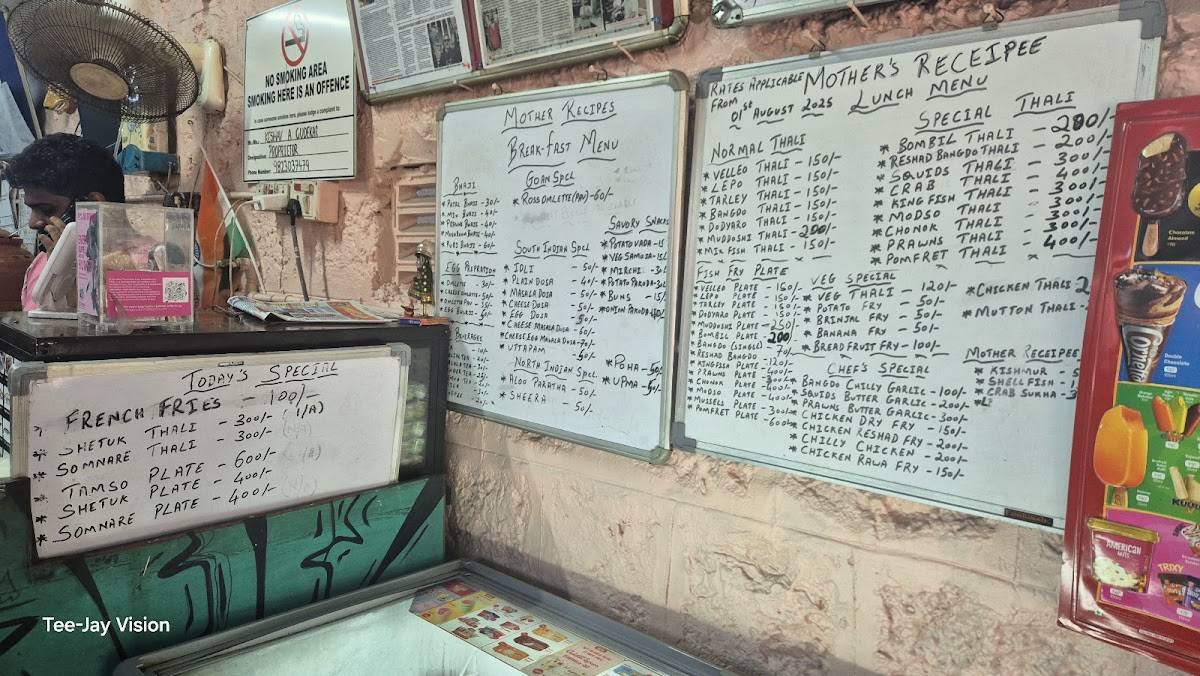 NO SMOKING AREA
SMOKING HERE IS AN OFFENCE
PROPRIETOR
MOTHER RECIPES
BREAK-FAST MENU
BHAJI
* MIX BUNS - 40/-
* MUSHROOM BUNS - 40/-
* PURI BUNS - 60/-
EGG PREPRATION
BEVERAGES
GOAN SPCL
* ROSS OMLETTE(PAV) - 60/-
SOUTH INDIAN SPCL
* IDLI - 50/-
* PLAIN DOSA - 40/-
* MASALA DOSA - 50/-
* CHEESE DOSA - 50/-
* EGG DOSA - 50/-
* CHEESE MASALA DOSA - 60/-
* CHEESE EGG MASALA DOSA - 70/-
* UTTAPAM - 50/-
NORTH INDIAN SPCL
* ALOO PARATHA - 50/-
* SHEERA - 50/-
SAVORY SNACKS
* POTATO VADA - 15
* VEG SAMOSA - 15
* MIRCHI
* POTATO PAKODA
* BUNS - 15/-
* ONION PAKODA
* POHA
* UPMA
RATES APPLICABLE
FROM 01st AUGUST 2025
MOTHER'S RECEIPEE
LUNCH MENU
NORMAL THALI
* VELLEO THALI - 150/-
* LEPO THALI - 150/-
* TARLEY THALI - 150/-
* BANGDO THALI - 150/-
* DODYARO THALI - 150/-
* MUDDOSHI THALI - 200/-
* MIX FISH THALI - 150/-
SPECIAL THALI
* BOMBIL THALI - 200/-
* RESHAD BANGDO THALI - 200/-
* SQUIDS THALI - 300/-
* CRAB THALI - 300/-
* KING FISH THALI - 300/-
* MODSO THALI - 300/-
* CHONOK THALI - 300/-
* PRAWNS THALI - 300/-
* POMFRET THALI - 400/-
FISH FRY PLATE
* VELLEO PLATE - 150/-
* LEPO PLATE - 150/-
* TARLEY PLATE - 150/-
* DODYARO PLATE - 150/-
* MUDDOSHI PLATE - 250/-
* BOMBIL PLATE - 200/-
* BANGDO (SINGLE) - 70/-
* RESHAD BANGDO - 120/-
* KINGFISH PLATE - 400/-
* PRAWNS PLATE - 300/-
* CHONOK PLATE - 400/-
* MODSO PLATE - 400/-
* MUSSELL PLATE - 300/-
* POMFRET PLATE - 600/-
VEG SPECIAL
* VEG THALI - 120/-
* POTATO FRY - 50/-
* BRINJAL FRY - 50/-
* BANANA FRY - 50/-
* BREADFRUIT FRY - 100/-
CHEF'S SPECIAL
* BANGDO CHILLY GARLIC - 100/-
* SQUIDS BUTTER GARLIC - 200/-
* PRAWNS BUTTER GARLIC - 300/-
* CHICKEN DRY FRY - 150/-
* CHICKEN RESHAD FRY - 200/-
* CHILLY CHICKEN - 200/-
* CHICKEN RAWA FRY - 150/-
* CHICKEN THALI - 2
* MUTTON THALI -
MOTHER RECEIPEE
* KISHMUR
* SHELL FISH
* CRAB SUKHA - 3
TODAY'S SPECIAL
FRENCH FRIES - 100/-
* SHETUK THALI - 300/- (N/A)
* SOMNARE THALI - 300/- (N/A)
* TAMSO PLATE - 600/-
* SHETUK PLATE - 400/-
* SOMNARE PLATE - 400/-
Chocolate
Almond
Double
Chocolate
AMERICAN
NUTS
TRIXY
Tee-Jay Vision